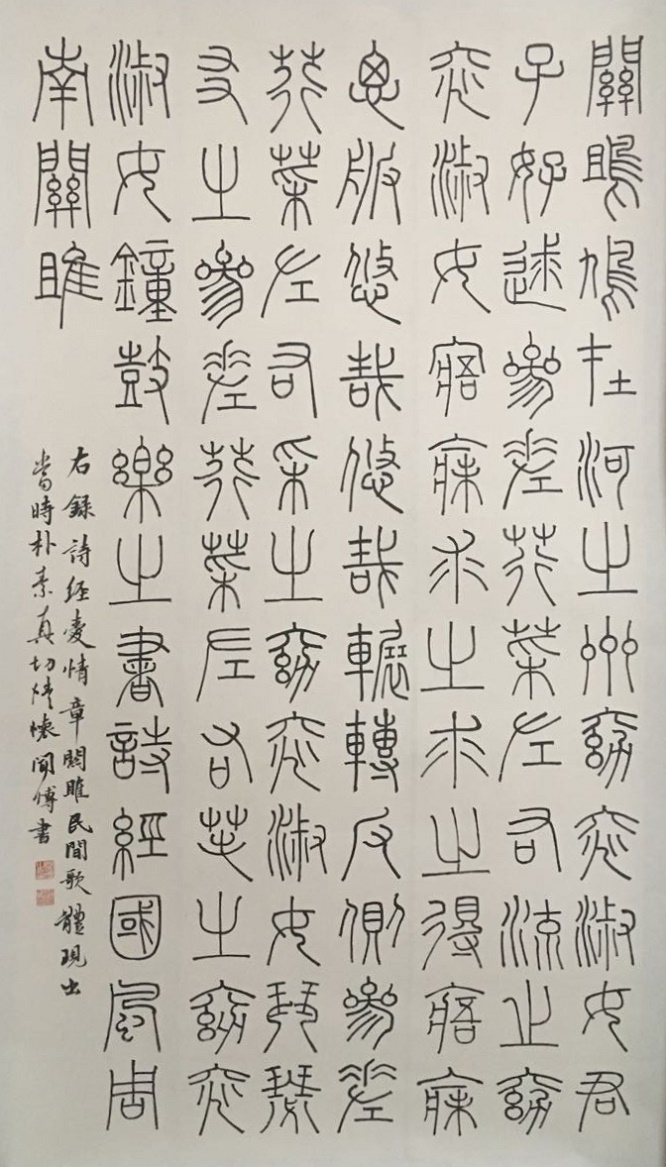 關鴡鳩在河之州窈窕淑女君
子好逑參差荇菜左右流之窈
窕淑女寤寐求之求之得寤寐
思服悠哉悠哉輾轉反側參差
荇菜左右采之窈窕淑女琴瑟
友之參差荇菜左右芼之窈窕
淑女鐘鼓樂之書詩經國風周
南關雎
右錄詩經愛情章關雎民間歌體現出
當時朴素真切情懷聞博書